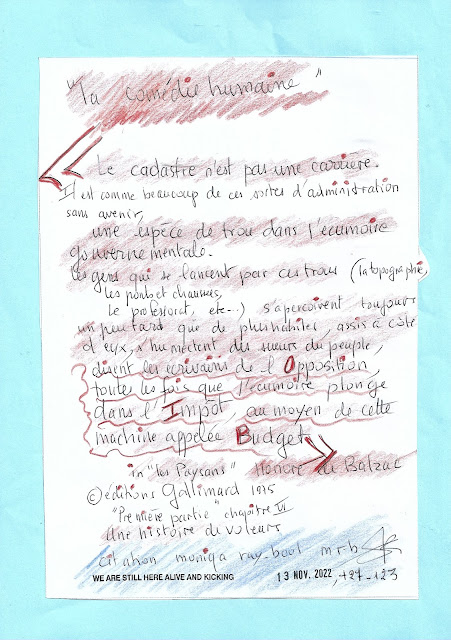 "la comédie humaine"
« Le cadastre n'est pas une carrière.
Il est comme beaucoup de ces sortes d'administration
sans avenir,
une espèce de trou dans l'écumoire
gouvernementale.
Les gens qui se lancent par ces trous (la topographie,
les ponts et chaussées,
le professorat, etc...) s'aperçoivent toujours
un peu tard que de plus habiles, assis à côté
d'eux, s'humectent des sueurs du peuple,
disent les écrivains de l'Opposition,
toutes les fois que l'écumoire plonge
dans l'Impôt, au moyen de cette
machine appelée Budget »
in "Les Paysans" Honoré de Balzac
© éditions Gallimard 1975
"Première partie" chapitre VI
Une histoire de voleurs
citation moniqa ray-bool mrb
WE ARE STILL HERE ALIVE AND KICKING 13 NOV. 2022 127-123